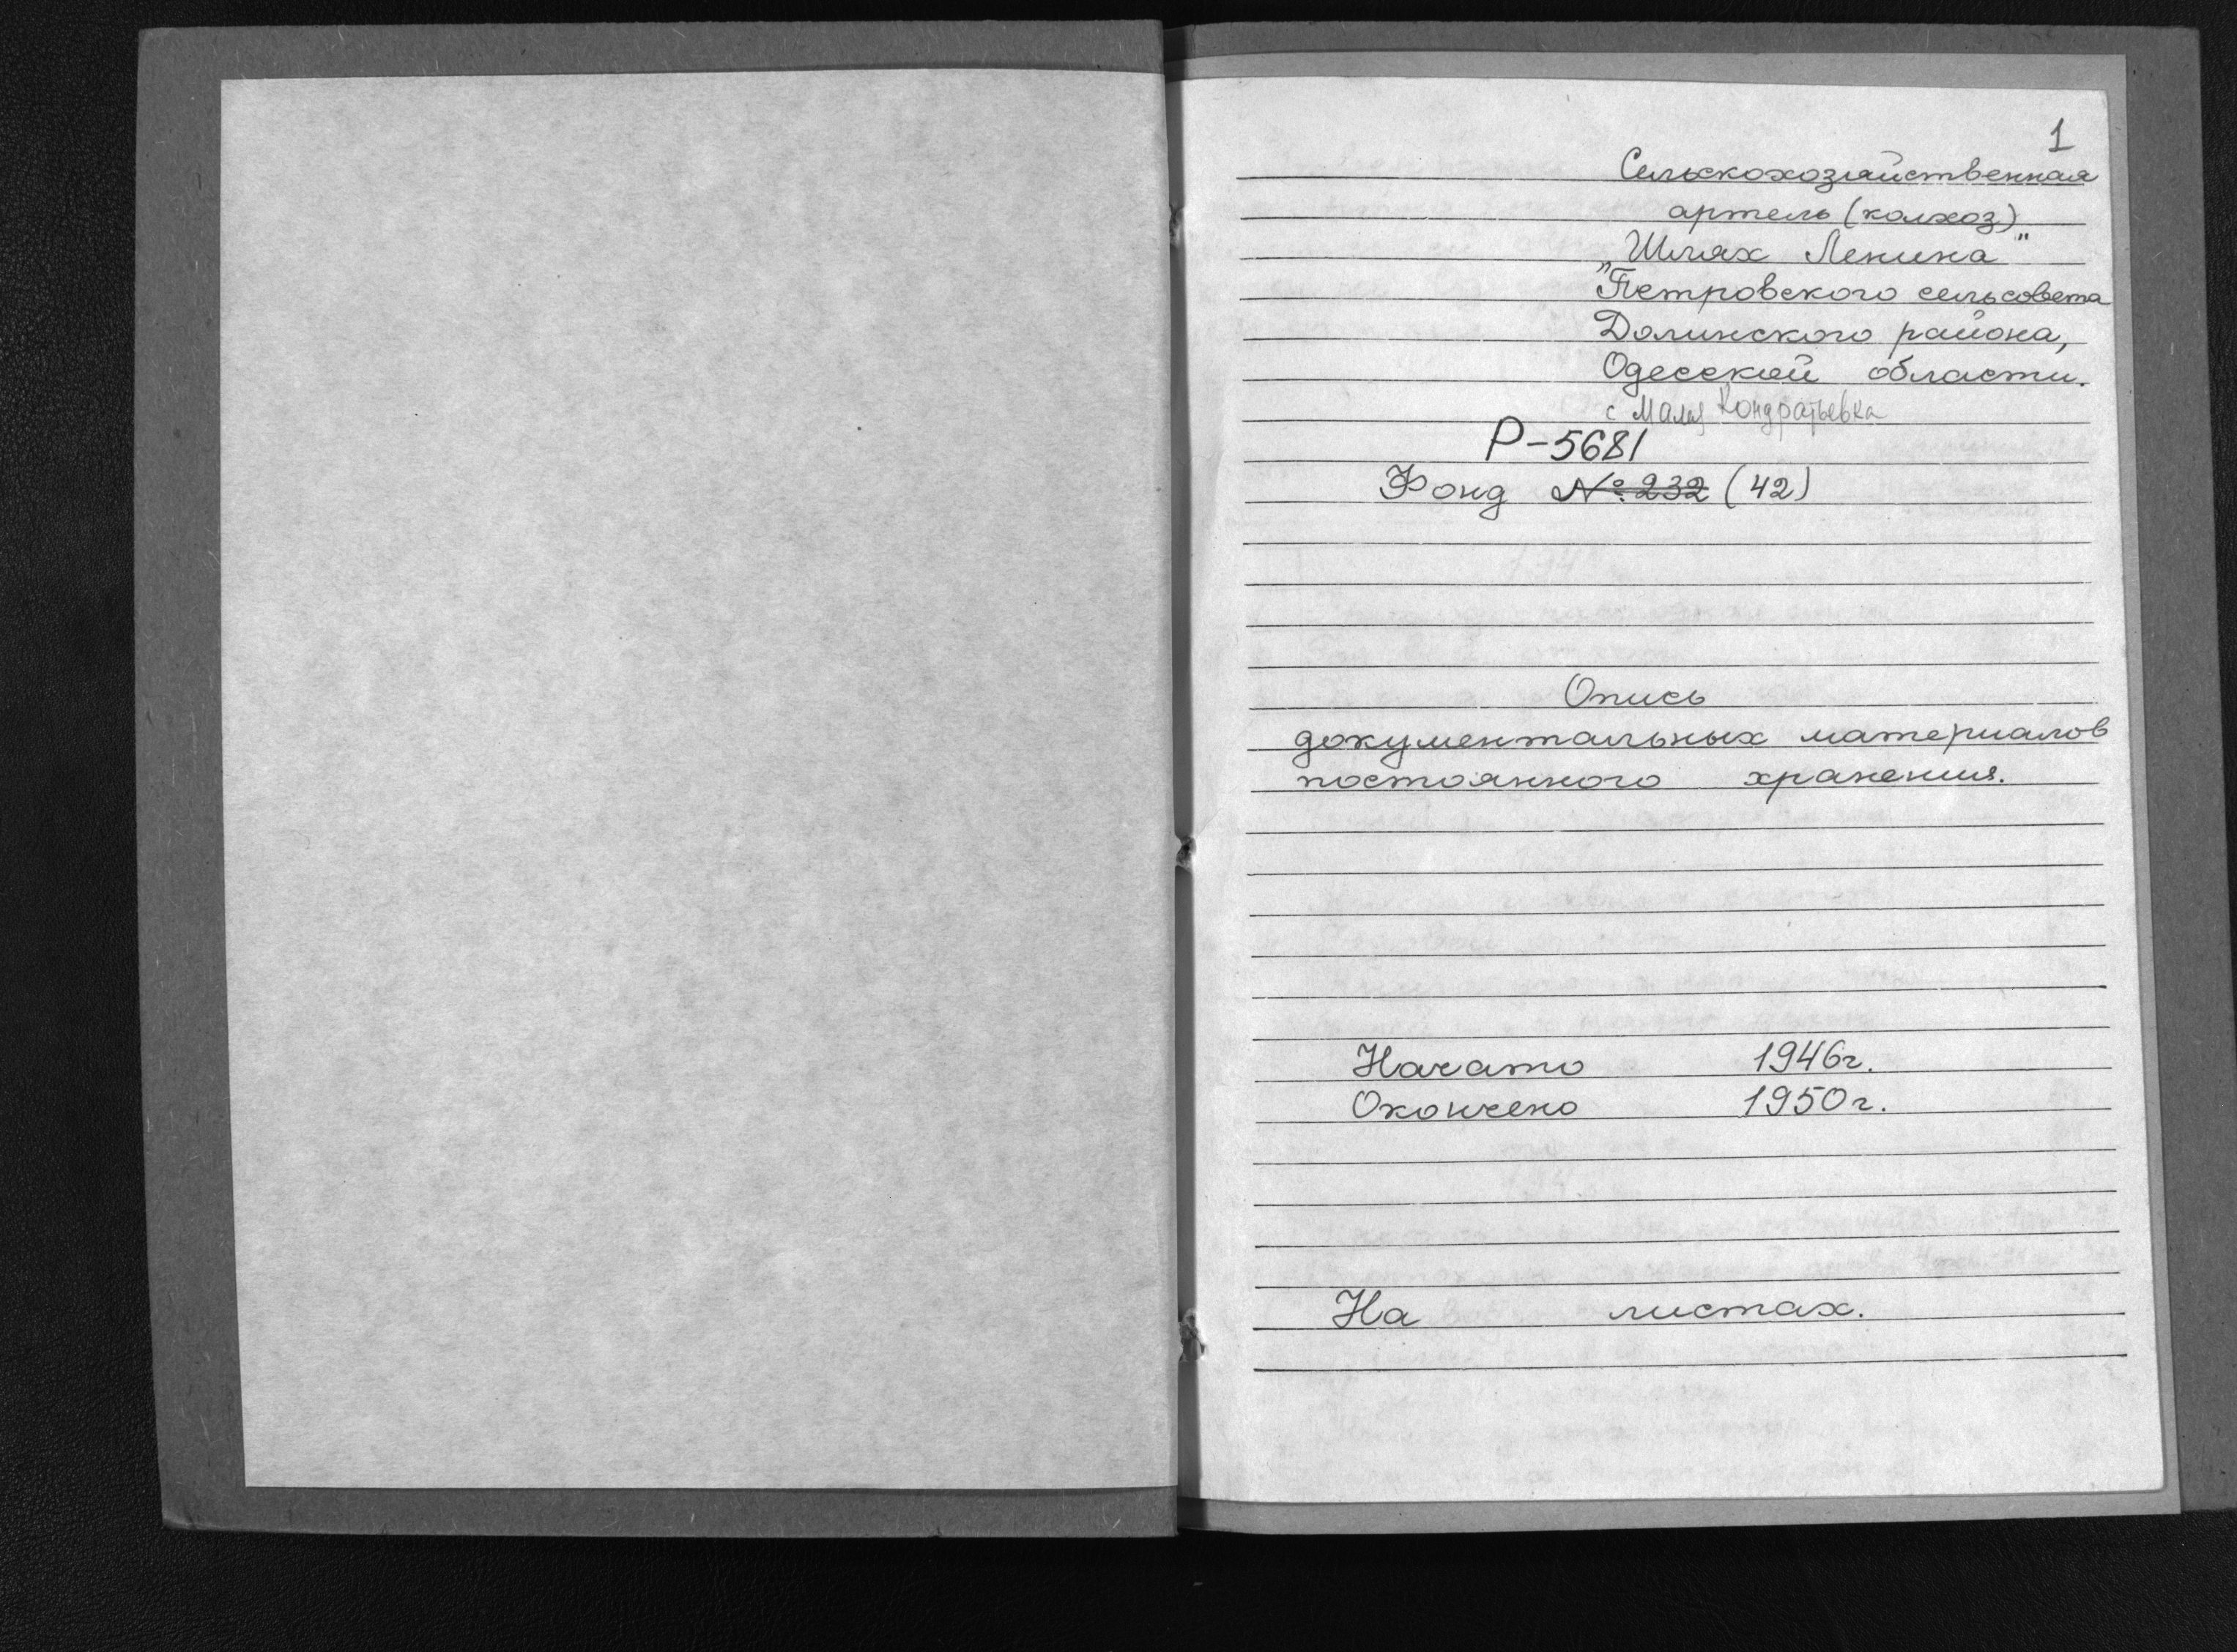 1
Сельскохозяйственная
артель (колхоз)
„Шлях Ленина"
Петровского сельсовета
Долинского района,
Одесской области.
с Малая Кондратьевка
Р-5681
Фонд №232 (42)
Опись
документальных материалов
постоянного хранения.
Начато 1946г.
Окончено 1950г.
На листах.